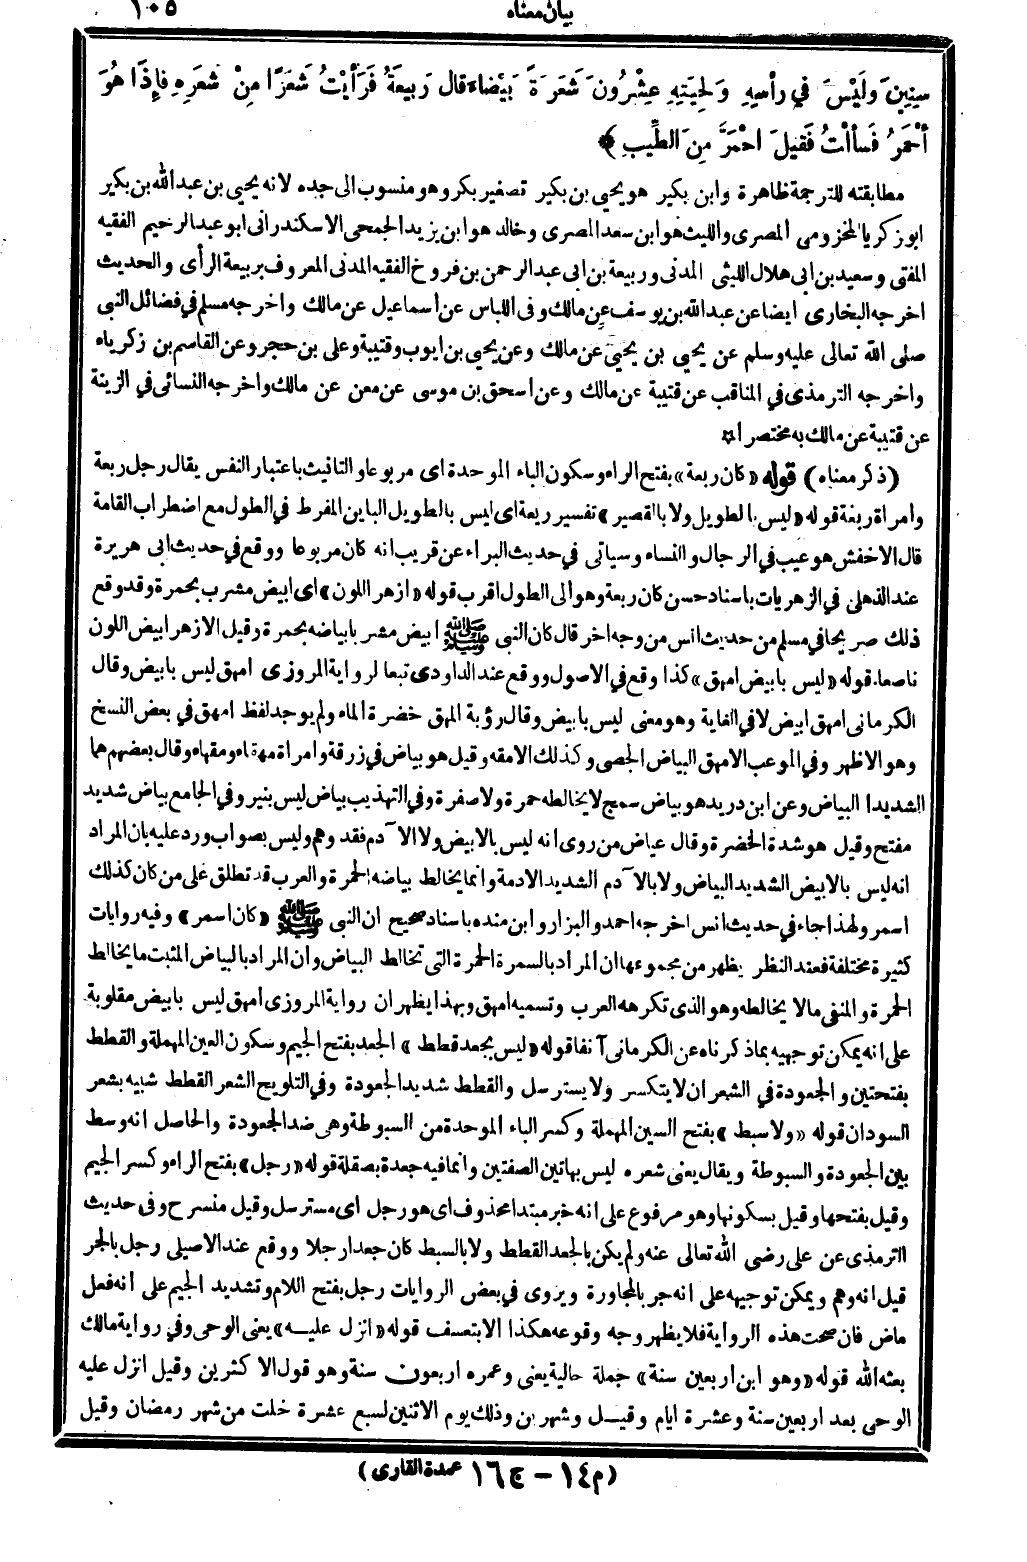 بيان معناه ١٠٥
سِنِينَ وَلَيْسَ فِي رَأْسِهِ وَلِحْيَتِهِ عِشْرُونَ شَعَرَةً بَيْضَاءَ قال رَبِيعَةُ فَرَأَيْتُ شَعَرًا مِنْ شَعَرِهِ فَإِذَا هُوَ
أَحْمَرُ فَسَأَلْتُ فَقِيلَ احْمَرَّ مِنَ الطِّيبِ ﴾
مطابقته للترجمة ظاهرة وابن بكير هو يحيى بن بكير تصغير بكر وهو منسوب الى جده لانه يحيى بن عبدالله بن بكير
ابو زكريا المخزومى المصرى والليث هو ابن سعد المصرى وخالد هو ابن يزيد الجمحى الاسكندرانى ابو عبد الرحيم الفقيه
المفتى وسعيد بن ابى هلال الليثى المدنى وربيعة بن ابى عبد الرحمن بن فروخ الفقيه المدنى المعروف بربيعة الرأى والحديث
اخرجه البخارى ايضا عن عبدالله بن يوسف عن مالك وفى اللباس عن أسماعيل عن مالك واخرجه مسلم فى فضائل النبى
صلى الله تعالى عليه وسلم عن يحيى بن يحيى عن مالك وعن يحيى بن ايوب وقتيبة وعلى بن حجر وعن القاسم بن زكرياء
واخرجه الترمذى فى المناقب عن قتيبة عن مالك وعن اسحق بن موسى عن معن عن مالك واخرجه النسائى فى الزينة
عن قتيبة عن مالك به مختصرا ☆
(ذكر معناه) قوله «كان ربعة» بفتح الراء وسكون الباء الموحدة اى مربوعا والتانيث باعتبار النفس يقال رجل ربعة
وامراة ربعة قوله «ليس بالطويل ولا بالقصير» تفسير ربعة اى ليس بالطويل الباين المفرط فى الطول مع اضطراب القامة
قال الاخفش هو عيب فى الرجال والنساء وسياتى فى حديث البراء عن قريب انه كان مربوعا ووقع فى حديث ابى هريرة
عند الذهلى فى الزهريات باسناد حسن كان ربعة وهو الى الطول اقرب قوله «ازهر اللون» اى ابيض مشرب بحمرة وقد وقع
ذلك صريحا فى مسلم من حديث انس من وجه اخر قال كان النبى ﷺ ابيض مشربا بياضه بحمرة وقيل الازهر ابيض اللون
ناصعا. قوله «ليس بابيض امهق» كذا وقع فى الاصول ووقع عند الداودى تبعا لرواية المروزى امهق ليس بابيض وقال
الكرمانى امهق ابيض لا فى الغاية وهو معنى ليس بابيض وقال رؤبة المهق خضرة الماء ولم يوجد لفظ امهق فى بعض النسخ
وهو الاظهر وفى الموعب الامهق البياض الجصى وكذلك الامقه وقيل هو بياض فى زرقة وامراة مهقاء ومقهاء وقال بعضهم هما
الشديدا البياض وعن ابن دريد هو بياض سمج لا يخالطه حمرة ولا صفرة وفى التهذيب بياض ليس بنير وفى الجامع بياض شديد
مفتح وقيل هو شدة الخضرة وقال عياض من روى انه ليس بالابيض ولا الآدم فقد وهم وليس بصواب ورد عليه بان المراد
انه ليس بالابيض الشديد البياض ولا بالآدم الشديد الادمة وانما يخالط بياضه الحمرة والعرب قد تطلق على من كان كذلك
اسمر ولهذا جاء فى حديث انس اخرجه احمد والبزار وابن منده باسناد صحيح ان النبى ﷺ «كان اسمر» وفيه روايات
كثيرة مختلفة فعند النظر يظهر من مجموعها ان المراد بالسمرة الحمرة التى تخالط البياض وان المراد بالبياض المثبت ما يخالط
الحمرة والمنفى مالا يخالطه وهو الذى تكرهه العرب وتسميه امهق وبهذا يظهر ان رواية المروزى امهق ليس بابيض مقلوبة
على انه يمكن توجيهه بماذكرناه عن الكرمانى آنفا قوله «ليس بجعد قطط» الجعد بفتح الجيم وسكون العين المهملة والقطط
بفتحتين والجعودة فى الشعر ان لا يتكسر ولا يسترسل والقطط شديد الجعودة وفى التلويح الشعر القطط شبيه بشعر
السودان قوله «ولا سبط» بفتح السين المهملة وكسر الباء الموحدة من السبوطة وهى ضد الجعودة والحاصل انه وسط
بين الجعودة والسبوطة ويقال يعنى شعره ليس بهاتين الصفتين وانما فيه جعدة بصقلة قوله «رجل» بفتح الراء وكسر الجيم
وقيل بفتحها وقيل بسكونها وهو مرفوع على انه خبر مبتدا محذوف اى هو رجل اى مسترسل وقيل منسرح وفى حديث
الترمذى عن على رضى الله تعالى عنه ولم يكن بالجعد القطط ولا بالسبط كان جعدا رجلا ووقع عند الاصيلى رجل بالجر
قيل انه وهم ويمكن توجيهه على انه جر بالمجاورة ويروى فى بعض الروايات رجل بفتح اللام وتشديد الجيم على انه فعل
ماض فان صحت هذه الرواية فلا يظهر وجه وقوعه هكذا الا بتعسف قوله «انزل عليه» يعنى الوحى وفى رواية مالك
بعثه الله قوله «وهو ابن اربعين سنة» جملة حالية يعنى وعمره اربعون سنة وهو قول الاكثرين وقيل انزل عليه
الوحى بعد اربعين سنة وعشرة ايام وقيل وشهرين وذلك يوم الاثنين لسبع عشرة خلت من شهر رمضان وقيل
(م ١٤ – ج ١٦ عمدة القارى)